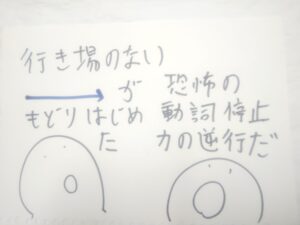 行き場のない
→が
もどりはじめ
た
恐怖の
動詞停止
力の逆行だ